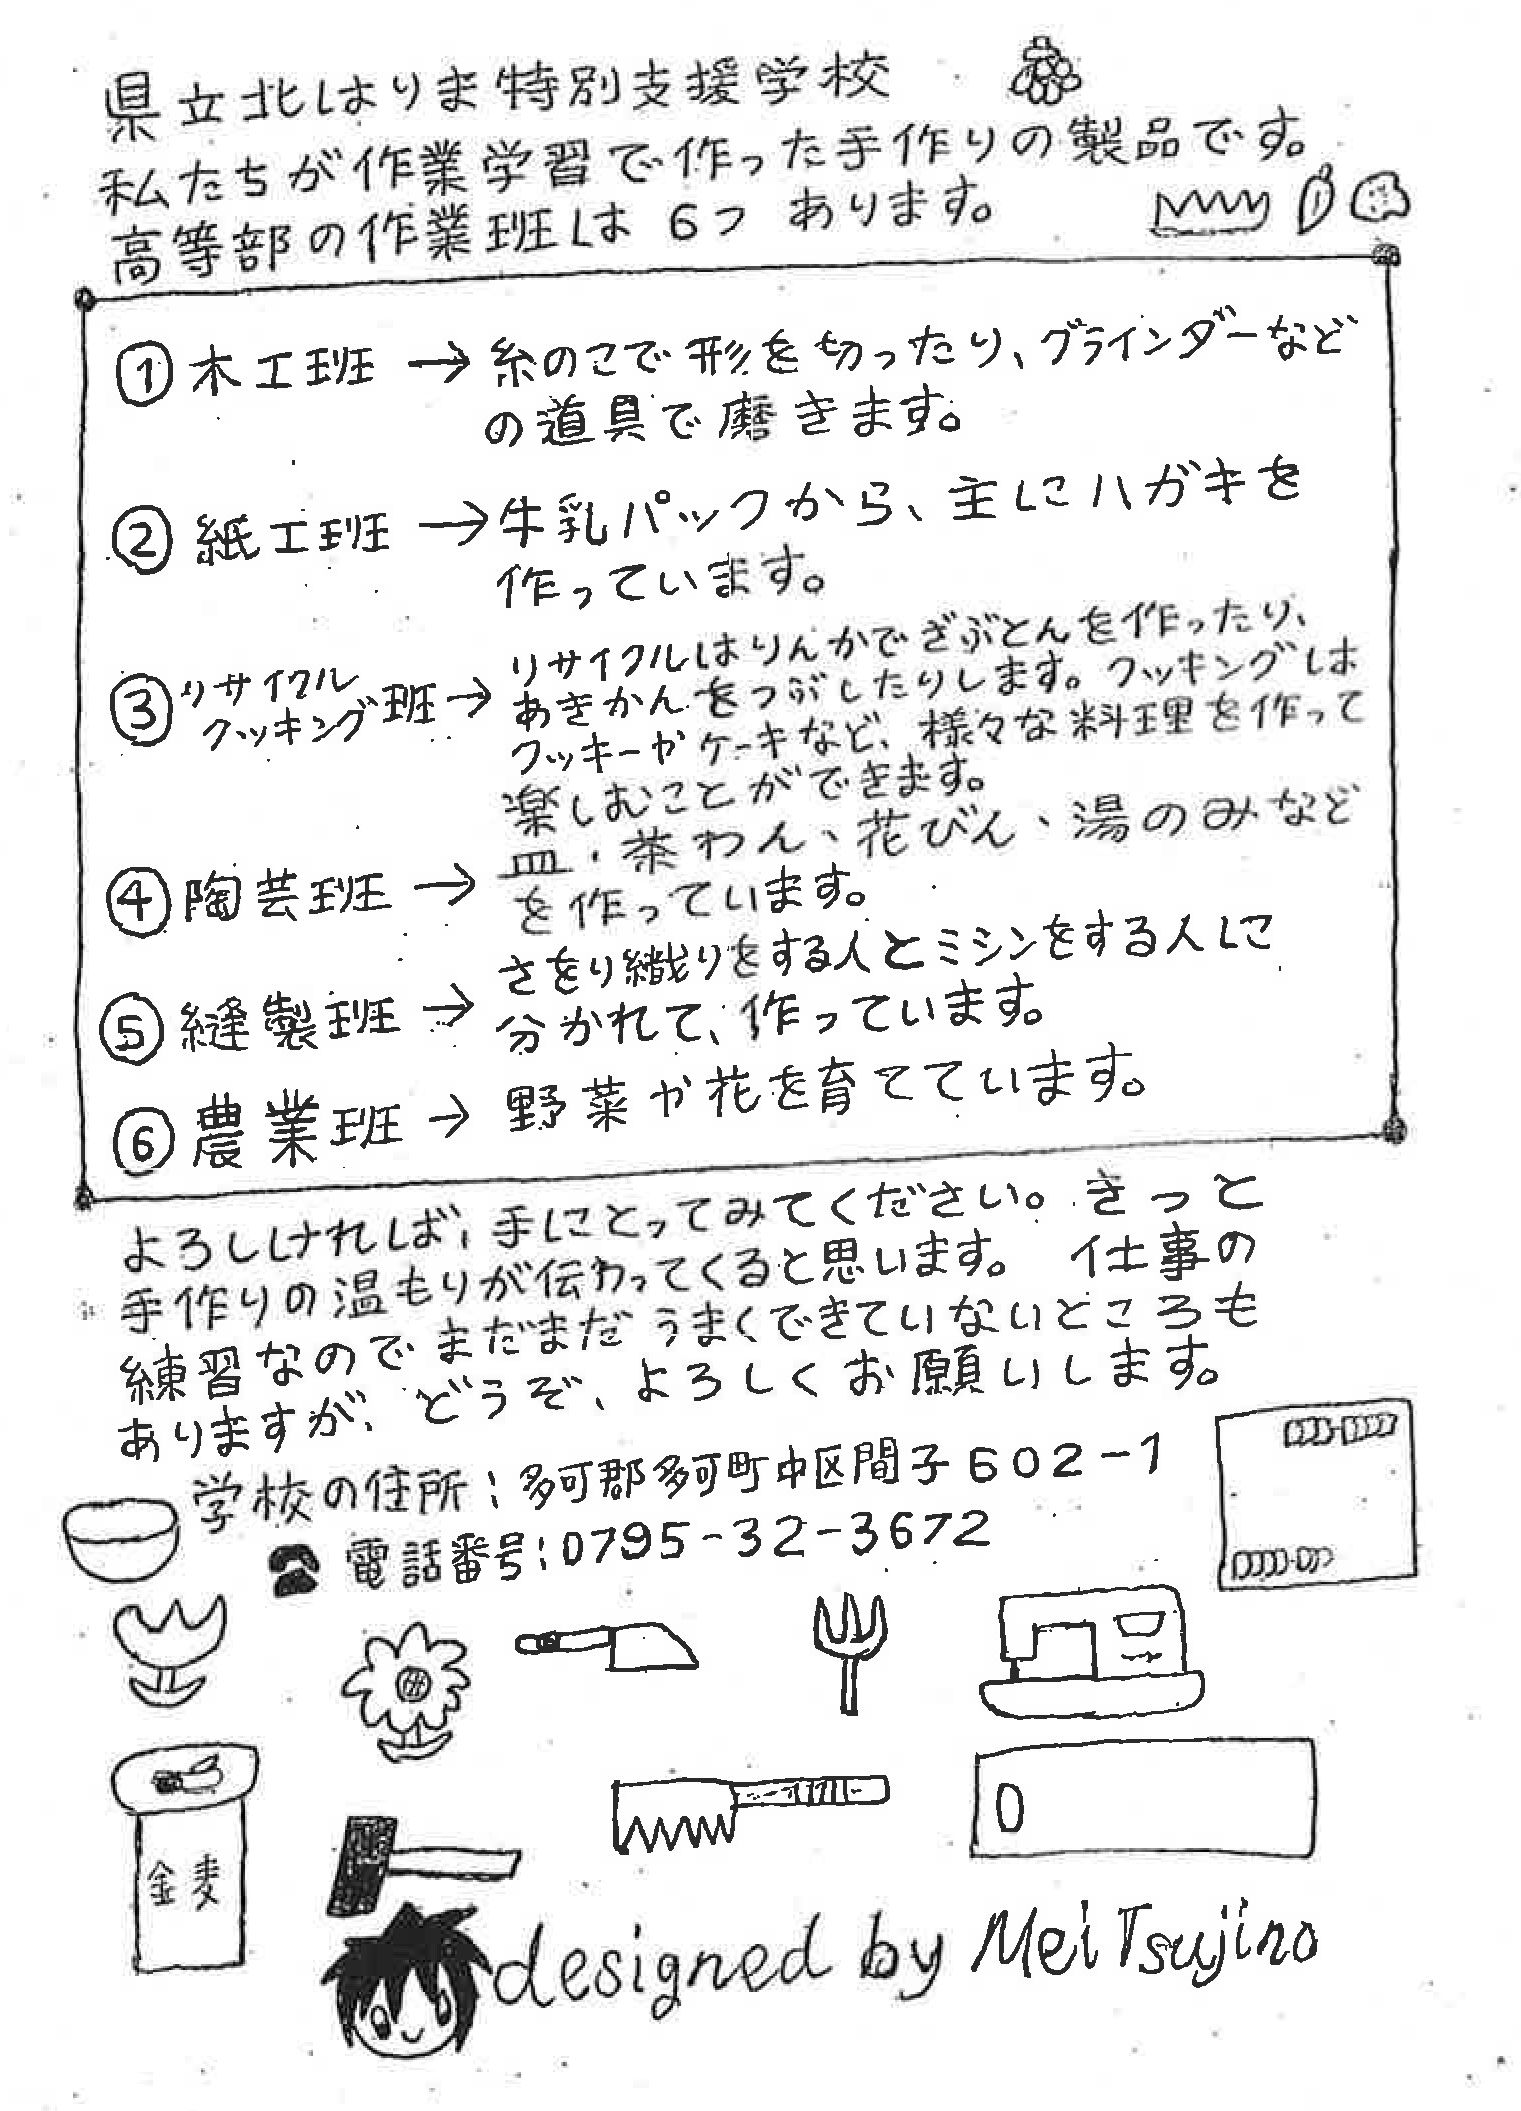 県立北はりま特別支援学校
私たちが作業学習で作った手作りの製品です。
高等部の作業班は 6つ あります。
① 木工班 → 糸のこで形を切ったり、グラインダーなど
の道具で磨きます。
② 紙工班 → 牛乳パックから、主にハガキを
作っています。
③ リサイクル
クッキング班 → リサイクルはりんかでざぶとんを作ったり、
あきかんをつぶしたりします。クッキングは
クッキーやケーキなど、様々な料理を作って
楽しむことができます。
④ 陶芸班 → 皿・茶わん、花びん、湯のみなど
を作っています。
⑤ 縫製班 → さをり織りをする人とミシンをする人に
分かれて、作っています。
⑥ 農業班 → 野菜や花を育てています。
よろしければ、手にとってみてください。きっと
手作りの温もりが伝わってくると思います。 仕事の
練習なのでまだまだうまくできていないところも
ありますが、どうぞ、よろしくお願いします。
学校の住所：多可郡多可町中区間子602-1
☎ 電話番号：0795-32-3672
金麦
designed by Mei Tsujino